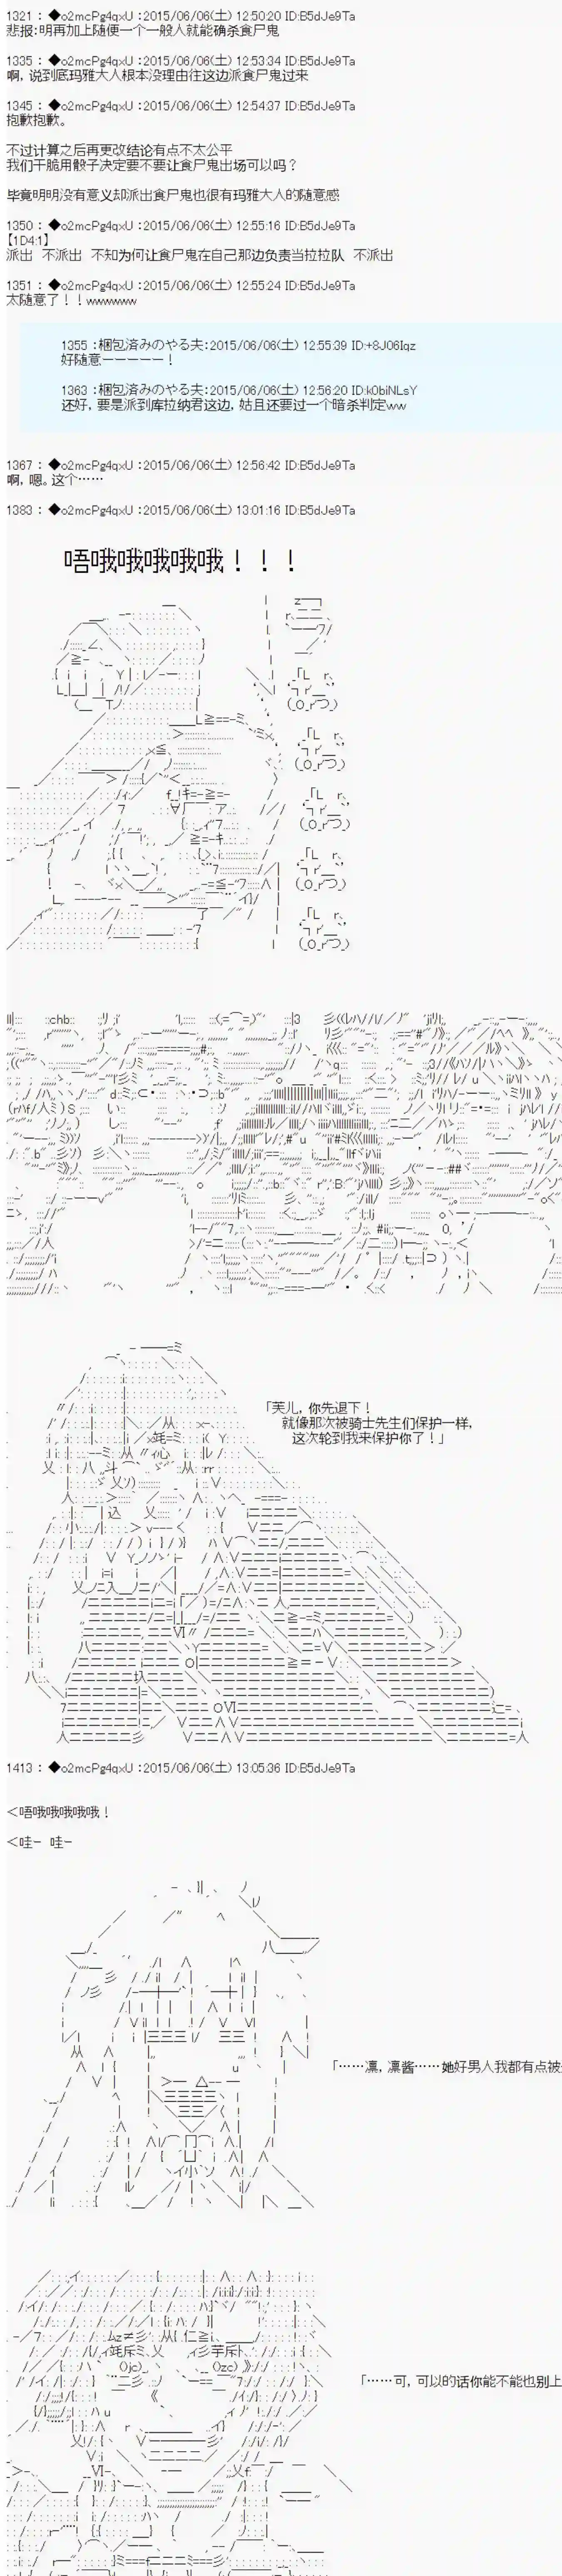 1321 : ◆o2mcPg4qxU : 2015/06/06(土) 12:50:20 ID:B5dJe9Ta
悲报:明再加上随便一个一般人就能确杀食尸鬼
1335 : ◆o2mcPg4qxU : 2015/06/06(土) 12:53:34 ID:B5dJe9Ta
啊, 说到底玛雅大人根本没理由往这边派食尸鬼过来
1345 : ◆o2mcPg4qxU : 2015/06/06(土) 12:54:37 ID:B5dJe9Ta
抱歉抱歉。
不过计算之后再更改结论有点不太公平
我们干脆用骰子决定要不要让食尸鬼出场可以吗?
毕竟明明没有意义却派出食尸鬼也很有玛雅大人的随意感
1350 : ◆o2mcPg4qxU : 2015/06/06(土) 12:55:16 ID:B5dJe9Ta
【1D4:1】
派出 不派出 不知为何让食尸鬼在自己那边负责当拉拉队 不派出
1351 : ◆o2mcPg4qxU : 2015/06/06(土) 12:55:24 ID:B5dJe9Ta
太随意了!!wwwwww
1355 : 梱包済みのやる夫 : 2015/06/06(土) 12:55:39 ID:+8J06Iqz
好随意ーーーーー!
1363 : 梱包済みのやる夫 : 2015/06/06(土) 12:56:20 ID:k0biNLsY
还好, 要是派到库拉纳君这边, 姑且还要过一个暗杀判定ww
1367 : ◆o2mcPg4qxU : 2015/06/06(土) 12:56:42 ID:B5dJe9Ta
啊, 嗯。这个……
1383 : ◆o2mcPg4qxU : 2015/06/06(土) 13:01:16 ID:B5dJe9Ta
唔哦哦哦哦哦!!!
「芙儿, 你先退下!
就像那次被骑士先生们保护一样,
这次轮到我来保护你了!」
1413 : ◆o2mcPg4qxU : 2015/06/06(土) 13:05:36 ID:B5dJe9Ta
<唔哦哦哦哦哦!
<哇- 哇-
「……凛, 凛酱……她好男人我都有点被
「……可, 可以的话你能不能也别上